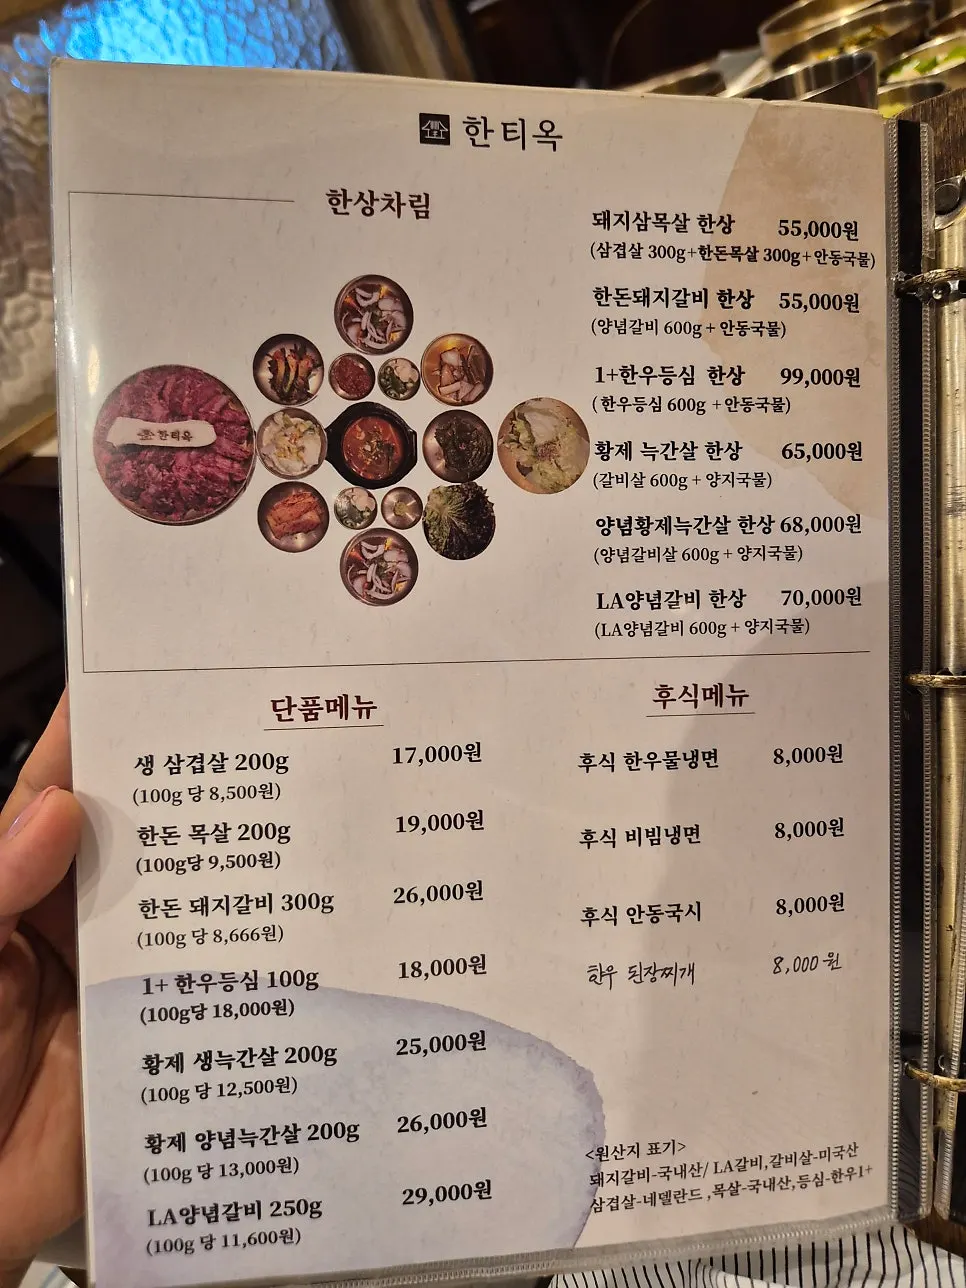 한티옥
한상차림
한티옥
돼지삼목살 한상 55,000원
(삼겹살 300g+한돈목살 300g+안동국물)
한돈돼지갈비 한상 55,000원
(양념갈비 600g + 안동국물)
1+한우등심 한상 99,000원
(한우등심 600g +안동국물)
황제 늑간살 한상 65,000원
(갈비살 600g + 양지국물)
양념황제늑간살 한상 68,000원
(양념갈비살 600g + 양지국물)
LA양념갈비 한상 70,000원
(LA양념갈비 600g + 양지국물)
단품메뉴
생 삼겹살 200g 17,000원
(100g 당 8,500원)
한돈 목살 200g 19,000원
(100g당 9,500원)
한돈 돼지갈비 300g 26,000원
(100g 당 8,666원)
1+ 한우등심 100g 18,000원
(100g당 18,000원)
황제 생늑간살 200g 25,000원
(100g 당 12,500원)
황제 양념늑간살 200g 26,000원
(100g 당 13,000원)
LA양념갈비 250g 29,000원
(100g 당 11,600원)
후식메뉴
후식 한우물냉면 8,000원
후식 비빔냉면 8,000원
후식 안동국시 8,000원
한우 된장찌개 8,000원
<원산지 표기>
돼지갈비-국내산/ LA갈비,갈비살-미국산
삼겹살-네델란드 ,목살-국내산,등심-한우1+